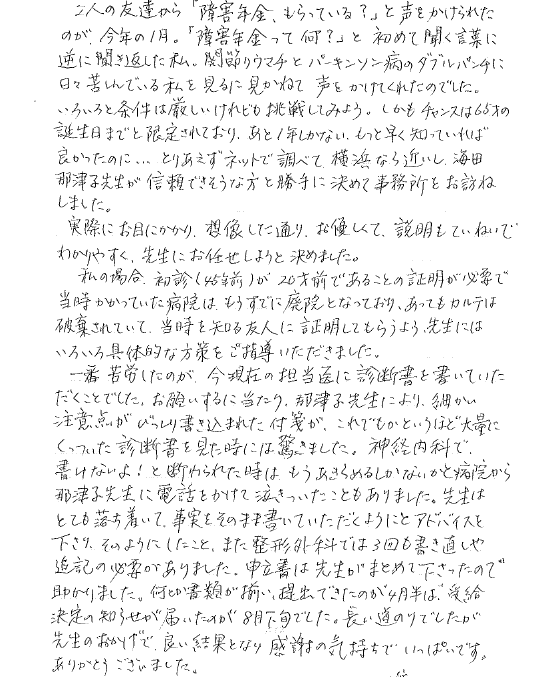 2人の友達から「障害年金、もらっている？」と声をかけられた
のが、今年の1月。「障害年金って何？」と初めて聞く言葉に
逆に聞き返した私。関節リウマチとパーキンソン病のダブルパンチに
日々苦しんでいる私を見るに見かねて声をかけてくれたのでした。
いろいろと条件は厳しいけれども挑戦してみよう。しかもチャンスは65才の
誕生日までと限定されており、あと1年しかない。もっと早く知っていれば
良かったのに… とりあえずネットで調べて、横浜なら近いし、海田
那津子先生が信頼できそうな方と勝手に決めて事務所をお訪ね
しました。
実際にお目にかかり、想像した通り、お優しくて、説明もていねいで
わかりやすく、先生にお任せしようと決めました。
私の場合、初診(45年前)が20才前であることの証明が必要で
当時かかっていた病院は、もうすでに廃院となっており、あってもカルテは
破棄されていて、当時を知る友人に証明してもらうよう、先生には
いろいろ具体的な方策をご指導いただきました。
一番苦労したのが、今現在の担当医に診断書を書いていた
だくことでした。お願いするに当たり、那津子先生により、細かい
注意点がびっしり書き込まれた付箋が、これでもかというほど大量に
くっついた診断書を見た時には驚きました。神経内科で、
書けないよ！と断わられた時は、もうあきらめるしかないかと病院から
那津子先生に電話をかけて泣きついたこともありました。先生は
とても落ち着いて、事実をそのまま書いていただくようにとアドバイスを
下さり、そのようにしたこと、また整形外科では3回も書き直しや
追記の必要がありました。申立書は先生がまとめて下さったので
助かりました。何とか書類が揃い、提出できたのが4月半ば、受給
決定の知らせが届いたのが8月下旬でした。長い道のりでしたが
先生のおかげで、良い結果となり感謝の気持ちでいっぱいです。
ありがとうございました。